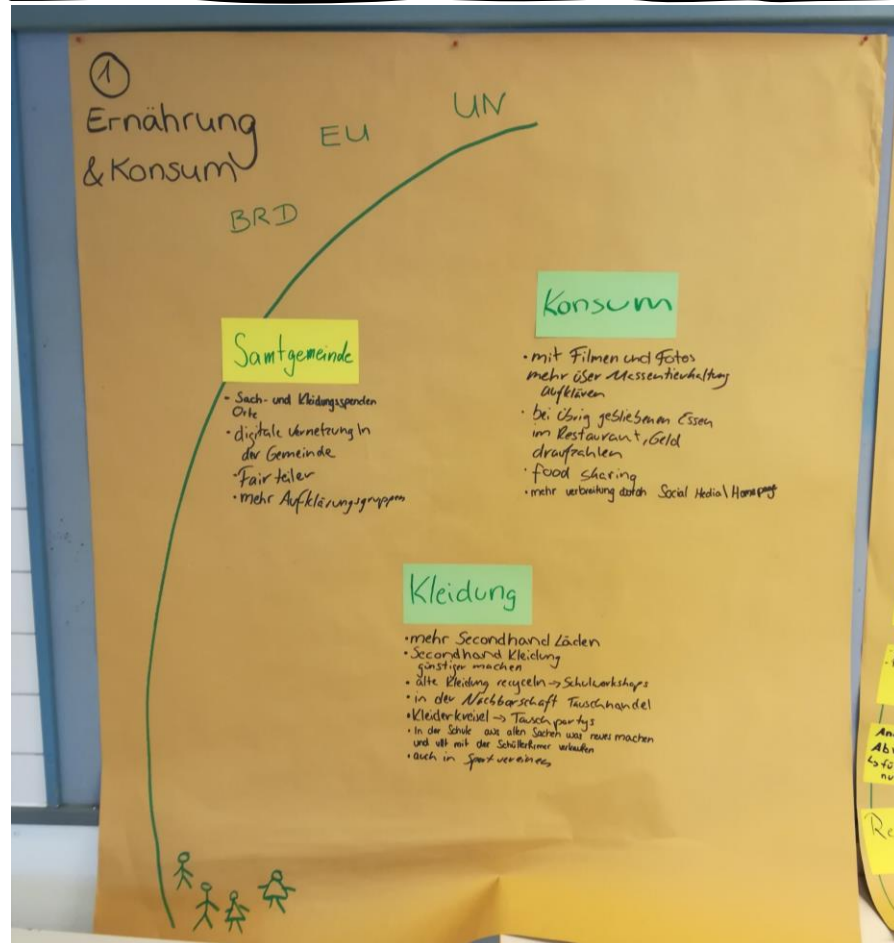 ①
Ernährung
& Konsum
UN
EU
BRD
Samtgemeinde
• Sach- und Kleidungsspenden
Orte
• digitale Vernetzung in
der Gemeinde
• Fair teiler
• mehr Aufklärungsgruppen
Konsum
• mit Filmen und Fotos
mehr über Massentierhaltung
aufklären
• bei übrig gebliebenem Essen
im Restaurant, Geld
draufzahlen
• food sharing
• mehr verbreitung durch Social Media \ Homepage
Kleidung
• mehr Secondhand Läden
• Secondhand Kleidung
günstiger machen
• alte Kleidung recyceln → Schulworkshops
• in der Nachbarschaft Tauschhandel
• Kleiderkreisel → Tauschpartys
• In der Schule aus alten Sachen was neues machen
und vllt mit der Schülerfirmer verkaufen
• auch in Sportvereinen